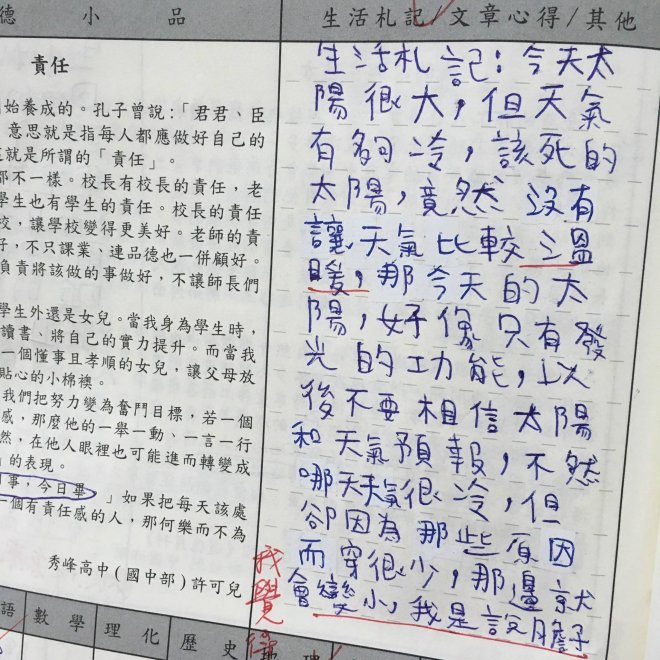 德 小 品
責任
始養成的。孔子曾說:「君君、臣
意思就是指每人都應做好自己的
就是所謂的「責任」。
都不一樣。校長有校長的責任，老
學生也有學生的責任。校長的責任
校，讓學校變得更美好。老師的責
好，不只課業、連品德也一併顧好。
負責將該做的事做好，不讓師長們
學生外還是女兒。當我身為學生時，
讀書、將自己的實力提升。而當我
一個懂事且孝順的女兒，讓父母放
貼心的小棉襖。
我們把努力變為奮鬥目標，若一個
感，那麼他的一舉一動、一言一行
然，在他人眼裡也可能進而轉變成
」的表現。
事，今日畢 」如果把每天該處
一個有責任感的人，那何樂而不為
秀峰高中(國中部)許可兒
生活札記/文章心得/其他
生活札記:今天太
陽很大，但天氣
有夠冷，該死的
太陽，竟然沒有
讓天氣比較溫
暖，那今天的太
陽，好像只有發
光的功能，以
後不要相信太陽
和天氣預報，不然
哪天天氣很冷，但
卻因為那些原因
而穿很少，那邊就
會變小，我是說膽子
我覺得
語 數學 理化 歷史 地理